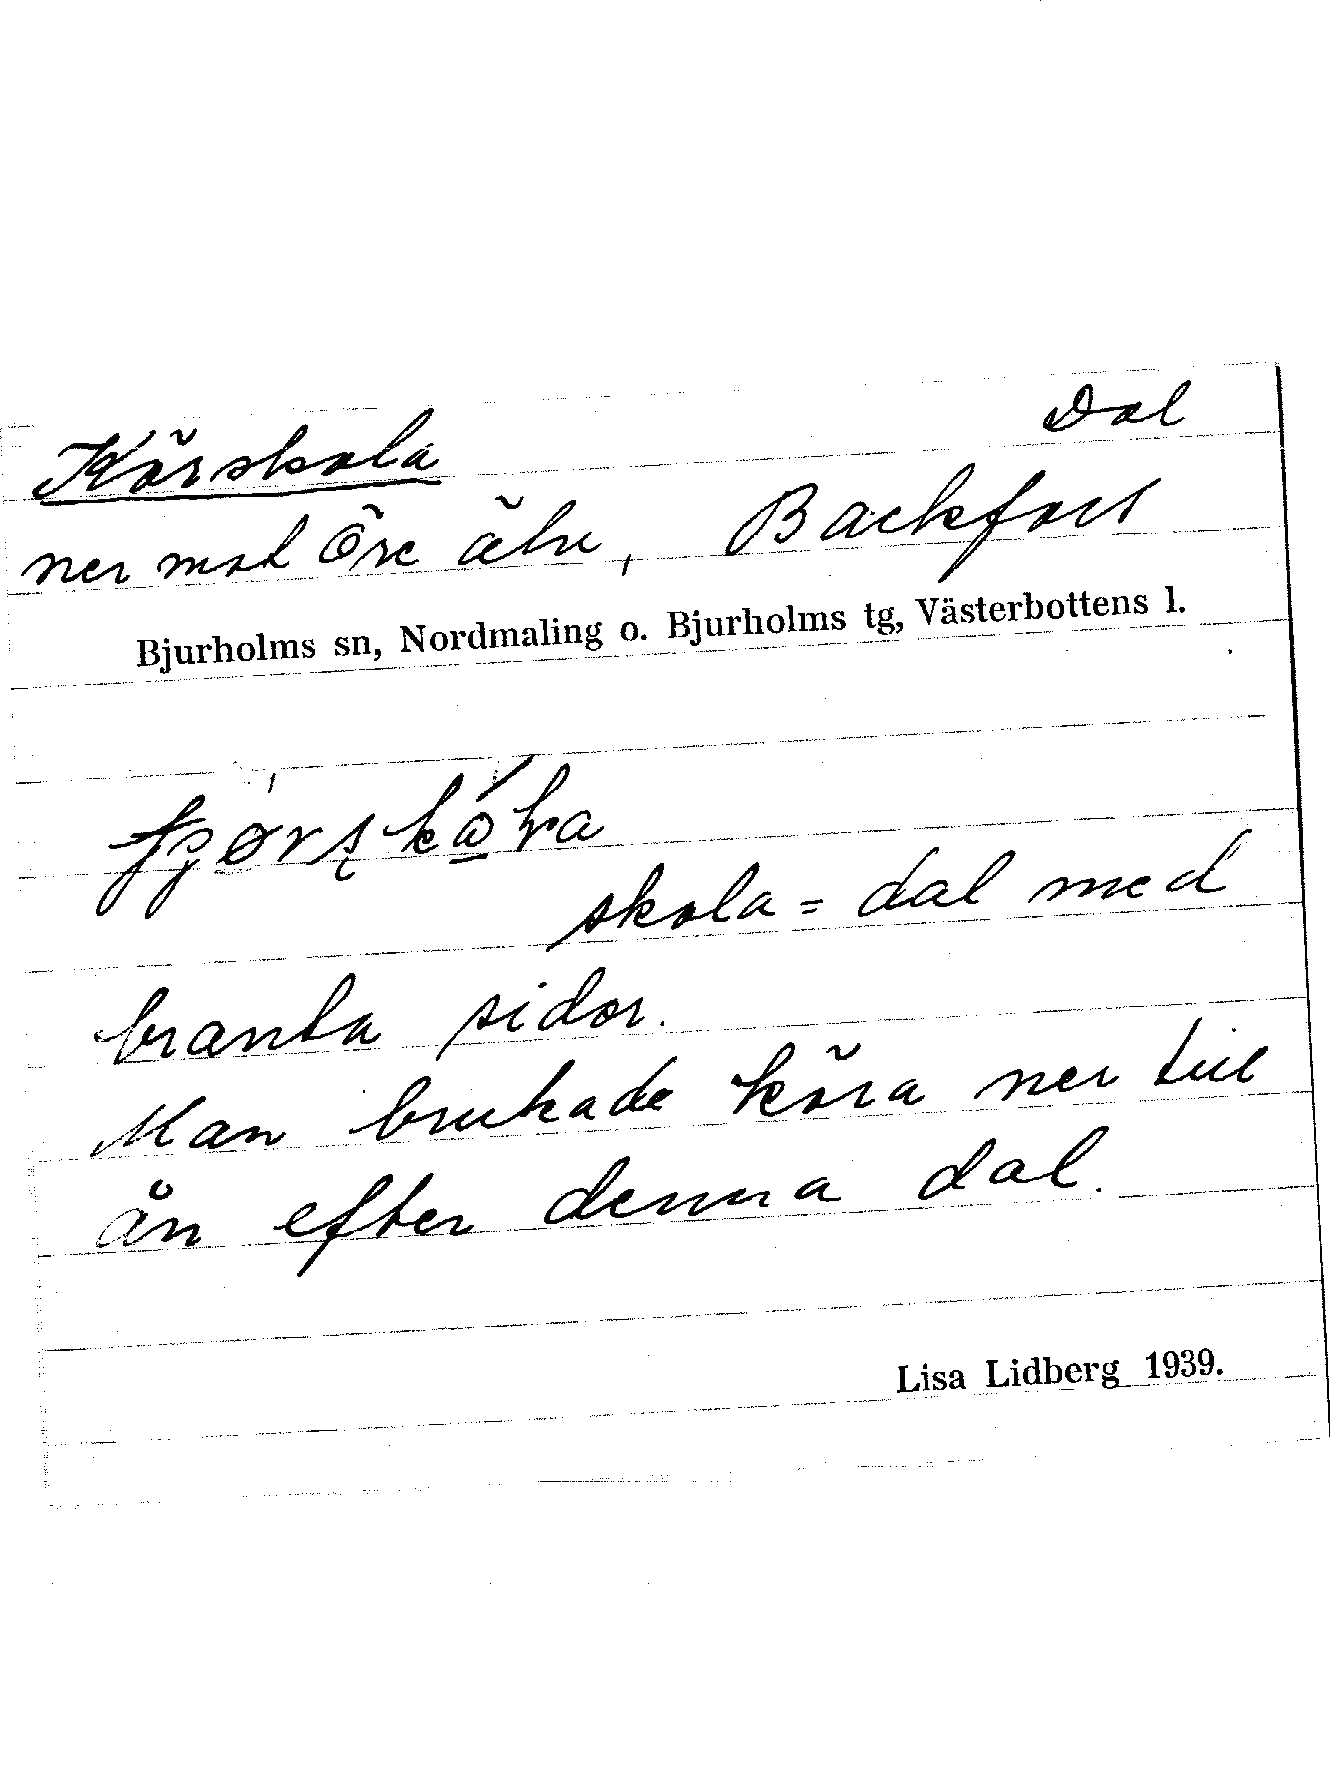 Körskola Dal
ner mot Öre älv, Backfors
Bjurholms sn, Nordmaling o. Bjurholms tg, Västerbottens l.
skola = dal med
branta sidor.
Man brukade köra ner till
ån efter denna dal.
Lisa Lidberg 1939.